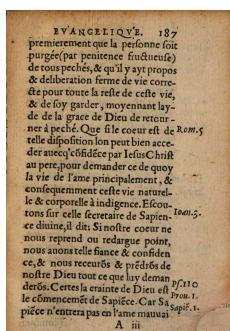 EVANGELIQVE. 187
premierement que la personne soit
purgée (par penitence fructueuse)
de tous pechés, & qu'il y ayt propos
& deliberation ferme de vie corre-
cte pour toute la reste de ceste vie,
& de soy garder, moyennant lay-
de de la grace de Dieu de retour-
ner à peché. Que si le coeur est de Rom.5
telle disposition lon peut bien acce-
der auecq' cõfidẽce par Iesus Christ
au pere, pour demander ce de quoy
la vie de l'ame principalement, &
consequemment ceste vie naturel-
le & corporelle à indigence. Escou-
tons sur celle secretaire de Sapien- Ioan.5.
ce diuine, il dit: Si nostre coeur ne
nous reprend ou redargue point,
nous auons telle fiance & confiden
ce, & nous receurõs & prẽdrõs de
nostre Dieu tout ce que luy deman
derõs. Certes la crainte de Dieu est Ps.110
le cõmencemẽt de Sapiẽce. Car Sa Prou.1.
piẽce n'entrera pas en l'ame mauuai Sapiẽ.1.
A iii